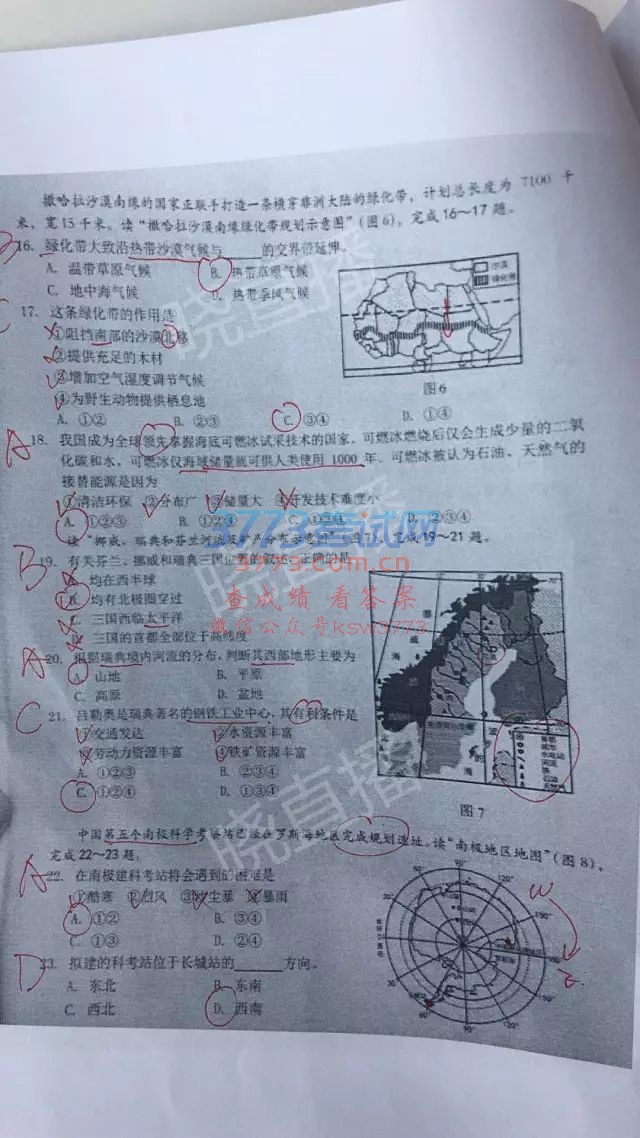 撒哈拉沙漠南缘的国家正联手打造一条横穿非洲大陆的绿化带，计划总长度为 7100 千
米，宽15千米。读“撒哈拉沙漠南缘绿化带规划示意图”（图6），完成16～17题。
B 16. 绿化带大致沿热带沙漠气候与____的交界带延伸。
A. 温带草原气候 B. 热带草原气候
C. 地中海气候 D. 热带季风气候
C 17. 这条绿化带的作用是
①阻挡南部的沙漠北移
②提供充足的木材
③增加空气湿度调节气候
④为野生动物提供栖息地
图6
A. ①② B. ②③ C. ③④ D. ①④
A 18. 我国成为全球领先掌握海底可燃冰试采技术的国家。可燃冰燃烧后仅会生成少量的二氧
化碳和水，可燃冰仅海域储量就可供人类使用 1000 年、可燃冰被认为石油、天然气的
接替能源是因为
①清洁环保 ②分布广 ③储量大 ④开发技术难度小
A. ①②③ B. ①②④ C. ①③④ D. ②③④
3773考试网
读“挪威、瑞典和芬兰河流及矿产分布示意图”（图7），完成19～21题。
3773.com.cn
B 19. 有关芬兰、挪威和瑞典三国位置的叙述，正确的是
A. 均在西半球
B. 均有北极圈穿过
查成绩 看答案
C. 三国西临太平洋
微信公众号ksw3773
D. 三国的首都全部位于高纬度
A 20. 根据瑞典境内河流的分布，判断其西部地形主要为
A. 山地 B. 平原
C. 高原 D. 盆地
C 21. 吕勒奥是瑞典著名的钢铁工业中心，其有利条件是
①交通发达 ②水资源丰富
③劳动力资源丰富 ④铁矿资源丰富
A. ①②③ B. ②③④
C. ①②④ D. ①③④
图7
中国第五个南极科学考察站已经在罗斯海地区完成规划选址。读“南极地区地图”（图8），
完成22～23题。
A 22. 在南极建科考站将会遇到的困难是
①酷寒 ②烈风 ③沙尘暴 ④暴雨
A. ①② B. ③④
C. ①③ D. ②④
D 23. 拟建的科考站位于长城站的____方向。
A. 东北 B. 东南
C. 西北 D. 西南
晓直播
晓直播
晓直播